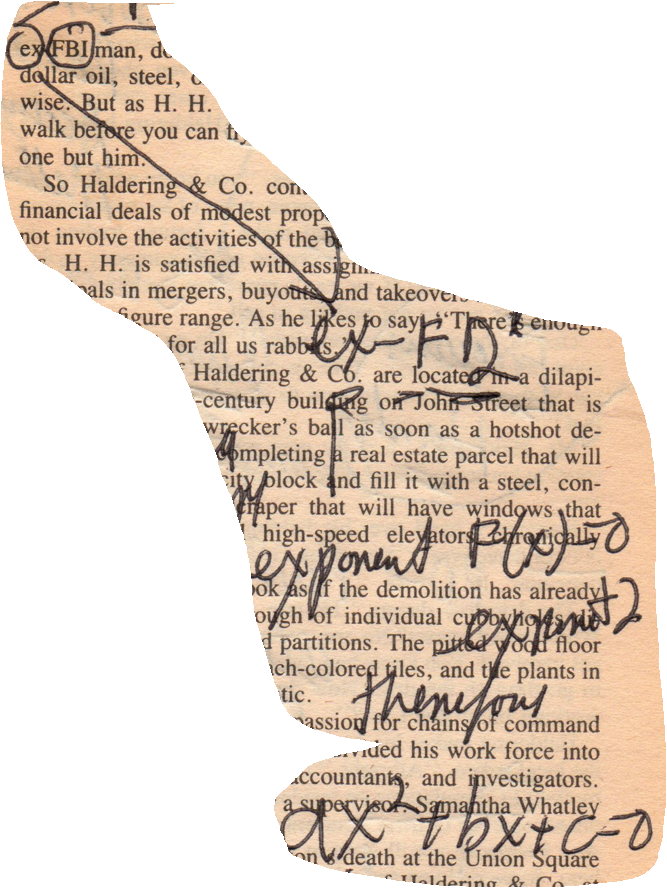 ex FBI man,
dollar oil, steel,
wise. But as H. H.
walk before you can fly
one but him.
So Haldering & Co.
financial deals of modest
not involve the activities of the
H. H. is satisfied with
in mergers, buyouts, and takeovers
figure range. As he likes to say, "There's enough
for all us rabbits."
ex-
Haldering & Co. are located in a dilapi-
-century building on John Street that is
wrecker's ball as soon as a hotshot de-
completing a real estate parcel that will
city block and fill it with a steel, con-
that will have windows that
high-speed elevators chronically
exponent F(x)=0
as if the demolition has already
of individual cubbyholes
partitions. The pitted wood floor
exponent 2
-colored tiles, and the plants in
therefour
passion for chains of command
divided his work force into
accountants, and investigators.
a supervisor. Samantha Whatley
ax²+bx+c=0
death at the Union Square
Haldering & Co. at